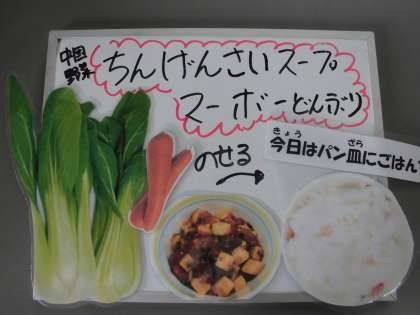 中国
野菜
ちんげんさいスープ
マーボーどんぶり
のせる
今日はパン皿にごはん
きょう
ざら